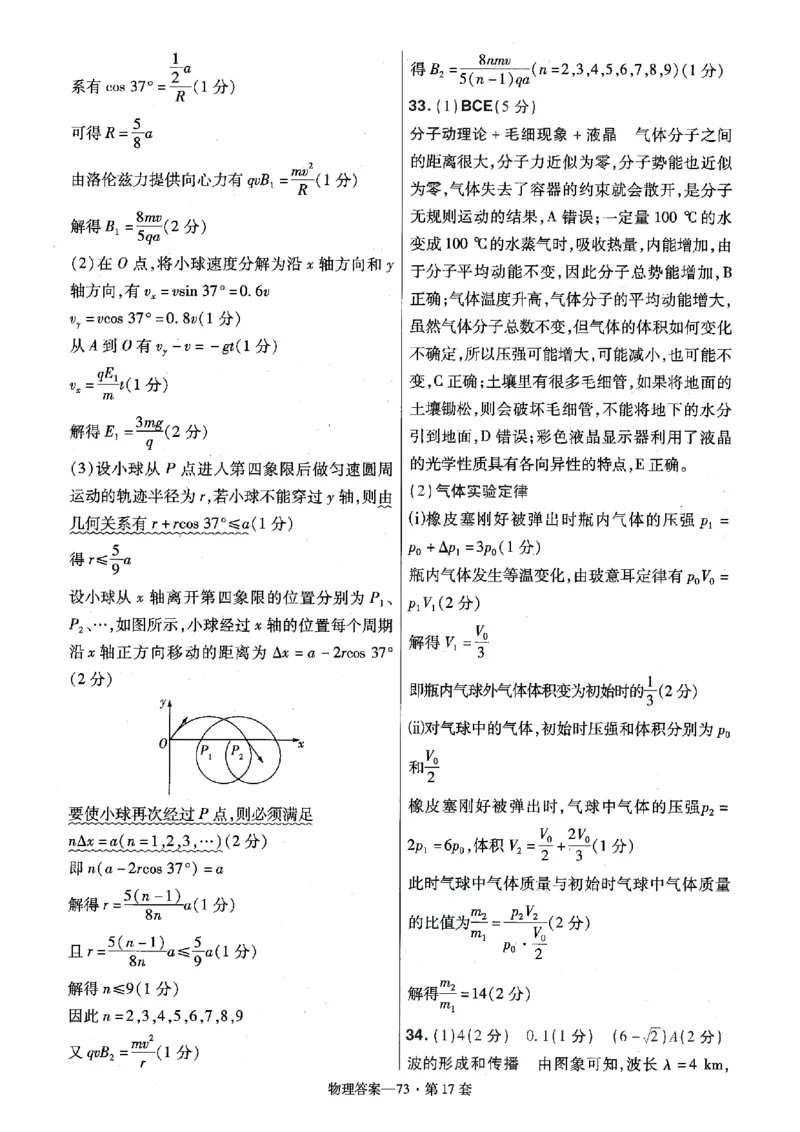 系有 cos 37° = \frac{\frac{1}{2}a}{R}(1 分)
可得 R = \frac{5}{8}a
由洛伦兹力提供向心力有 qvB₁ = \frac{mv²}{R}(1 分)
解得 B₁ = \frac{8mv}{5qa}(2 分)
(2)在 O 点,将小球速度分解为沿 x 轴方向和 y
轴方向,有 vₓ = vsin 37° = 0.6v
v_y = vcos 37° = 0.8v(1 分)
从 A 到 O 有 v_y - v = -gt(1 分)
vₓ = \frac{qE₁}{m}t(1 分)
解得 E₁ = \frac{3mg}{q}(2 分)
(3)设小球从 P 点进入第四象限后做匀速圆周
运动的轨迹半径为 r,若小球不能穿过 y 轴,则由
几何关系有 r + rcos 37° ≤ a(1 分)
得 r ≤ \frac{5}{9}a
设小球从 x 轴离开第四象限的位置分别为 P₁、
P₂、…,如图所示,小球经过 x 轴的位置每个周期
沿 x 轴正方向移动的距离为 Δx = a - 2rcos 37°
(2 分)
y
O P₁ P₂ x
要使小球再次经过 P 点,则必须满足
nΔx = a(n = 1,2,3,…)(2 分)
即 n(a - 2rcos 37°) = a
解得 r = \frac{5(n-1)}{8n}a(1 分)
且 r = \frac{5(n-1)}{8n}a ≤ \frac{5}{9}a(1 分)
解得 n ≤ 9(1 分)
因此 n = 2,3,4,5,6,7,8,9
又 qvB₂ = \frac{mv²}{r}(1 分)
得 B₂ = \frac{8nmv}{5(n-1)qa}(n = 2,3,4,5,6,7,8,9)(1 分)
33. (1)BCE(5 分)
分子动理论 + 毛细现象 + 液晶 气体分子之间
的距离很大,分子力近似为零,分子势能也近似
为零,气体失去了容器的约束就会散开,是分子
无规则运动的结果,A 错误;一定量 100 ℃的水
变成 100 ℃的水蒸气时,吸收热量,内能增加,由
于分子平均动能不变,因此分子总势能增加,B
正确;气体温度升高,气体分子的平均动能增大,
虽然气体分子总数不变,但气体的体积如何变化
不确定,所以压强可能增大,可能减小,也可能不
变,C 正确;土壤里有很多毛细管,如果将地面的
土壤锄松,则会破坏毛细管,不能将地下的水分
引到地面,D 错误;彩色液晶显示器利用了液晶
的光学性质具有各向异性的特点,E 正确。
(2)气体实验定律
(ⅰ)橡皮塞刚好被弹出时瓶内气体的压强 p₁ =
p₀ + Δp₁ = 3p₀(1 分)
瓶内气体发生等温变化,由玻意耳定律有 p₀V₀ =
p₁V₁(2 分)
解得 V₁ = \frac{V₀}{3}
即瓶内气球外气体体积变为初始时的\frac{1}{3}(2 分)
(ⅱ)对气球中的气体,初始时压强和体积分别为 p₀
和\frac{V₀}{2}
橡皮塞刚好被弹出时,气球中气体的压强p₂ =
2p₁ = 6p₀,体积 V₂ = \frac{V₀}{2} + \frac{2V₀}{3}(1 分)
此时气球中气体质量与初始时气球中气体质量
的比值为\frac{m₂}{m₁} = \frac{p₂V₂}{p₀·\frac{V₀}{2}}(2 分)
解得\frac{m₂}{m₁} = 14(2 分)
34. (1)4(2 分) 0.1(1 分) (6 - √2)A(2 分)
波的形成和传播 由图象可知,波长 λ = 4 km,
物理答案—73·第 17 套